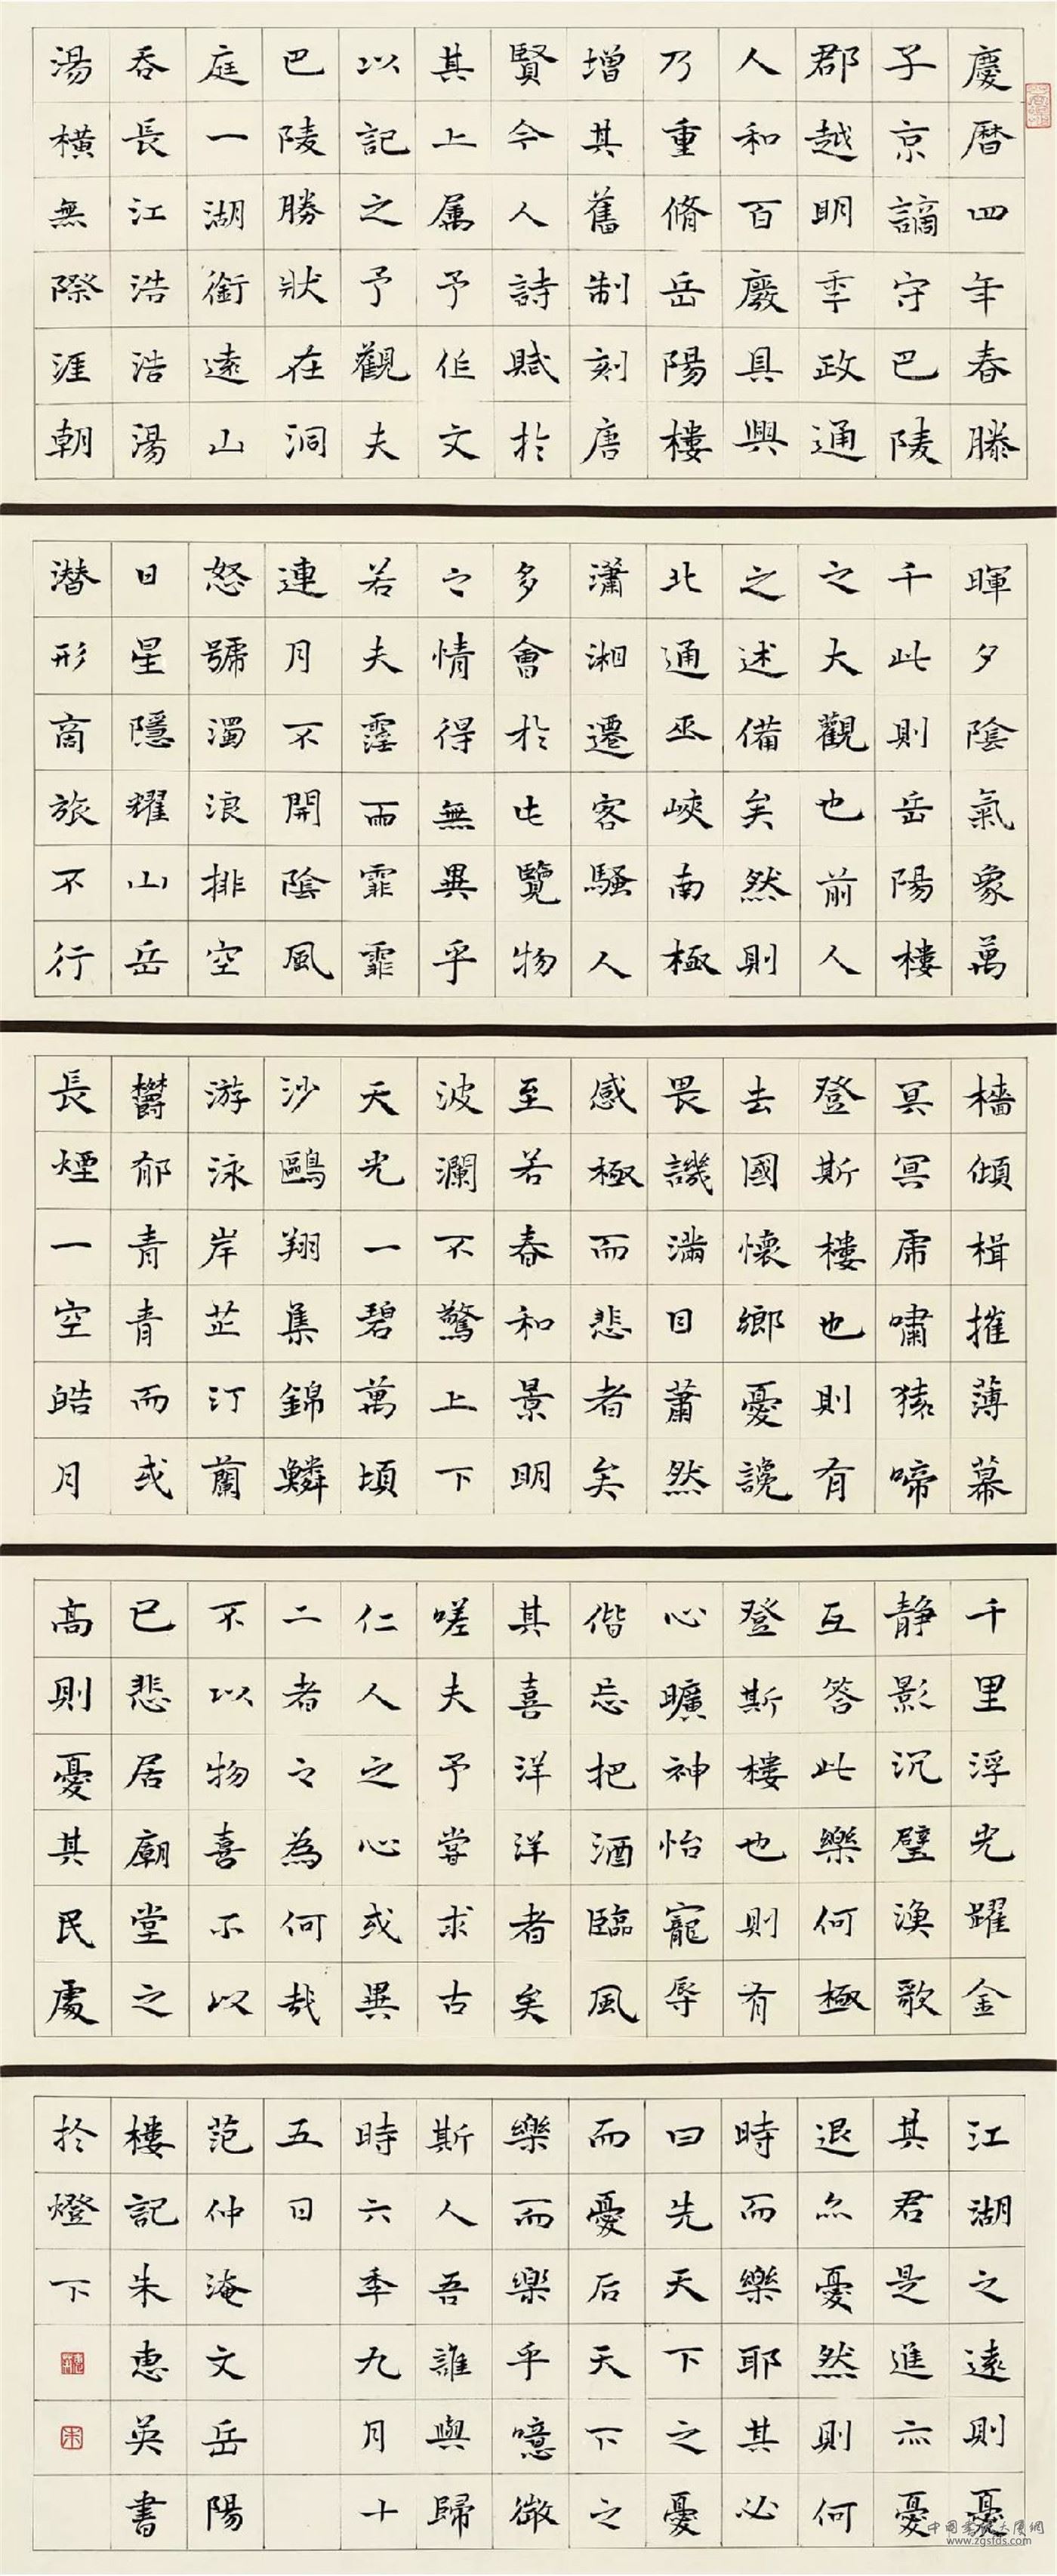 慶曆四年春滕
子京謫守巴陵
郡越明季政通
人和百廢具興
乃重脩岳陽樓
增其舊制刻唐
賢今人詩賦於
其上属予作文
以記之予觀夫
巴陵勝狀在洞
庭一湖銜遠山
吞長江浩浩湯
湯横無際涯朝
暉夕陰氣象萬
千此則岳陽樓
之大觀也前人
之述備矣然則
北通巫峽南極
瀟湘遷客騷人
多會於此覽物
之情得無異乎
若夫霪雨霏霏
連月不開陰風
怒號濁浪排空
日星隱耀山岳
潜形商旅不行
檣傾楫摧薄幕
冥冥虎嘯猿啼
登斯樓也則有
去國懷鄉憂讒
畏譏滿目蕭然
感極而悲者矣
至若春和景明
波瀾不驚上下
天光一碧萬頃
沙鷗翔集錦鱗
游泳岸芷汀蘭
欝郁青青而或
長煙一空皓月
千里浮光躍金
静影沉璧漁歌
互答此樂何極
登斯樓也則有
心曠神怡寵辱
偕忘把酒臨風
其喜洋洋者矣
嗟夫予嘗求古
仁人之心或異
二者之為何哉
不以物喜不以
已悲居廟堂之
高則憂其民處
江湖之遠則憂
其君是進亦憂
退亦憂然則何
時而樂耶其必
曰先天下之憂
而憂后天下之
樂而樂乎噫微
斯人吾誰與歸
時六季九月十
五日
范仲淹文岳陽
樓記朱惠英書
於燈下
朱
中国书法大厦網
www.zgsfds.com